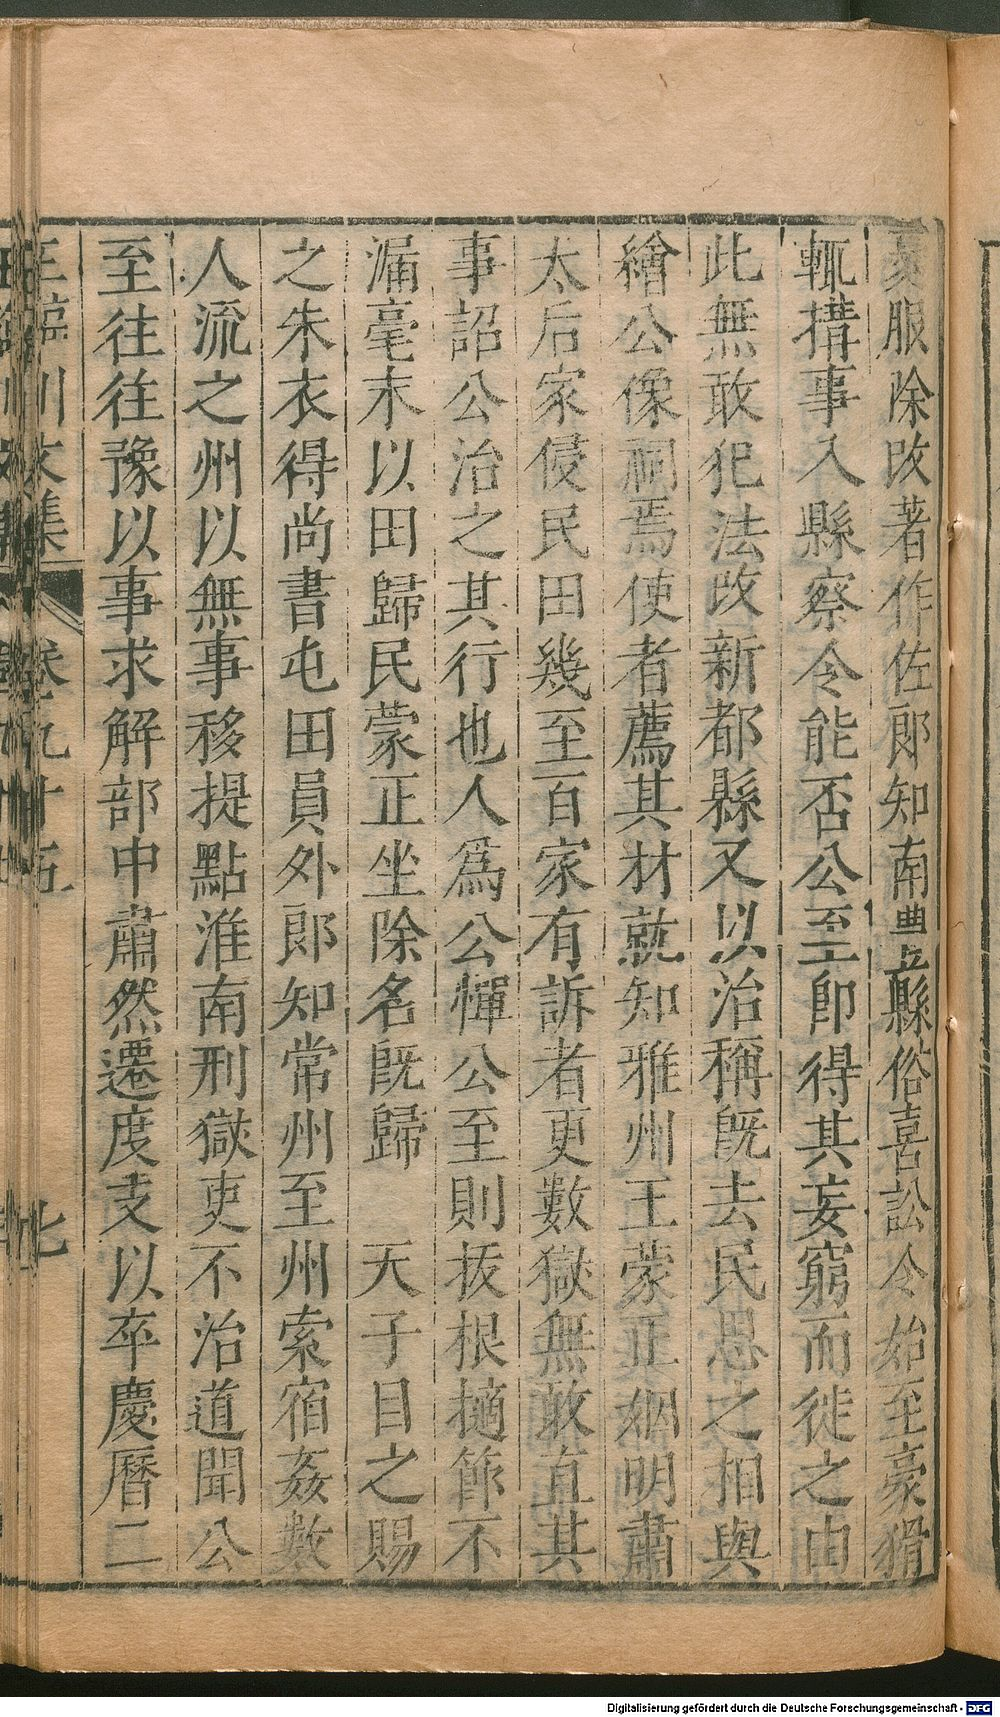 服除改著作佐郎知南豐縣俗喜訟令始至豪猾
輒搆事入縣察令能否公至卽得其妄窮而徙之由
此無敢犯法改新都縣又以治稱旣去民思之相與
繪公像祠焉使者薦其材就知雅州王蒙正姻明肅
太后家侵民田幾至百家有訴者更數獄無敢直其
事詔公治之其行也人爲公憚公至則拔根擿節不
漏毫末以田歸民蒙正坐除名旣歸　天子目之賜
之朱衣得尚書屯田員外郎知常州至州索宿姦數
人流之州以無事移提點淮南刑獄吏不治道聞公
至往往豫以事求解部中肅然遷度支以卒慶曆二
王臨川文集　卷九十五　七
Digitalisierung gefördert durch die Deutsche Forschungsgemeinschaft - DFG